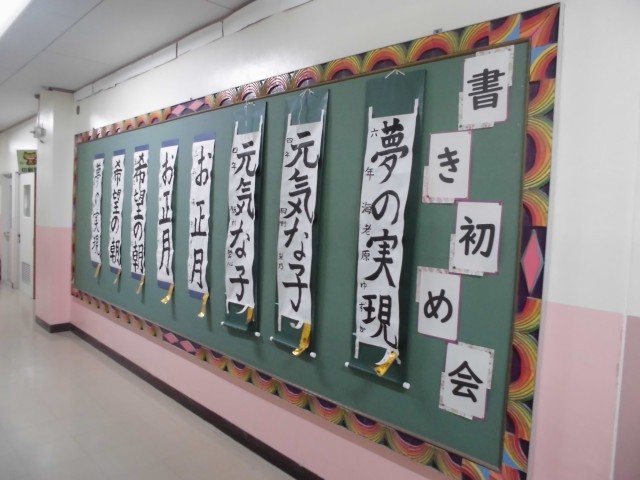 書き初め会
夢の実現
六年 海老原
元気な子
四年
元気な子
四年
お正月
お正月
希望の朝
希望の朝
夢の実現